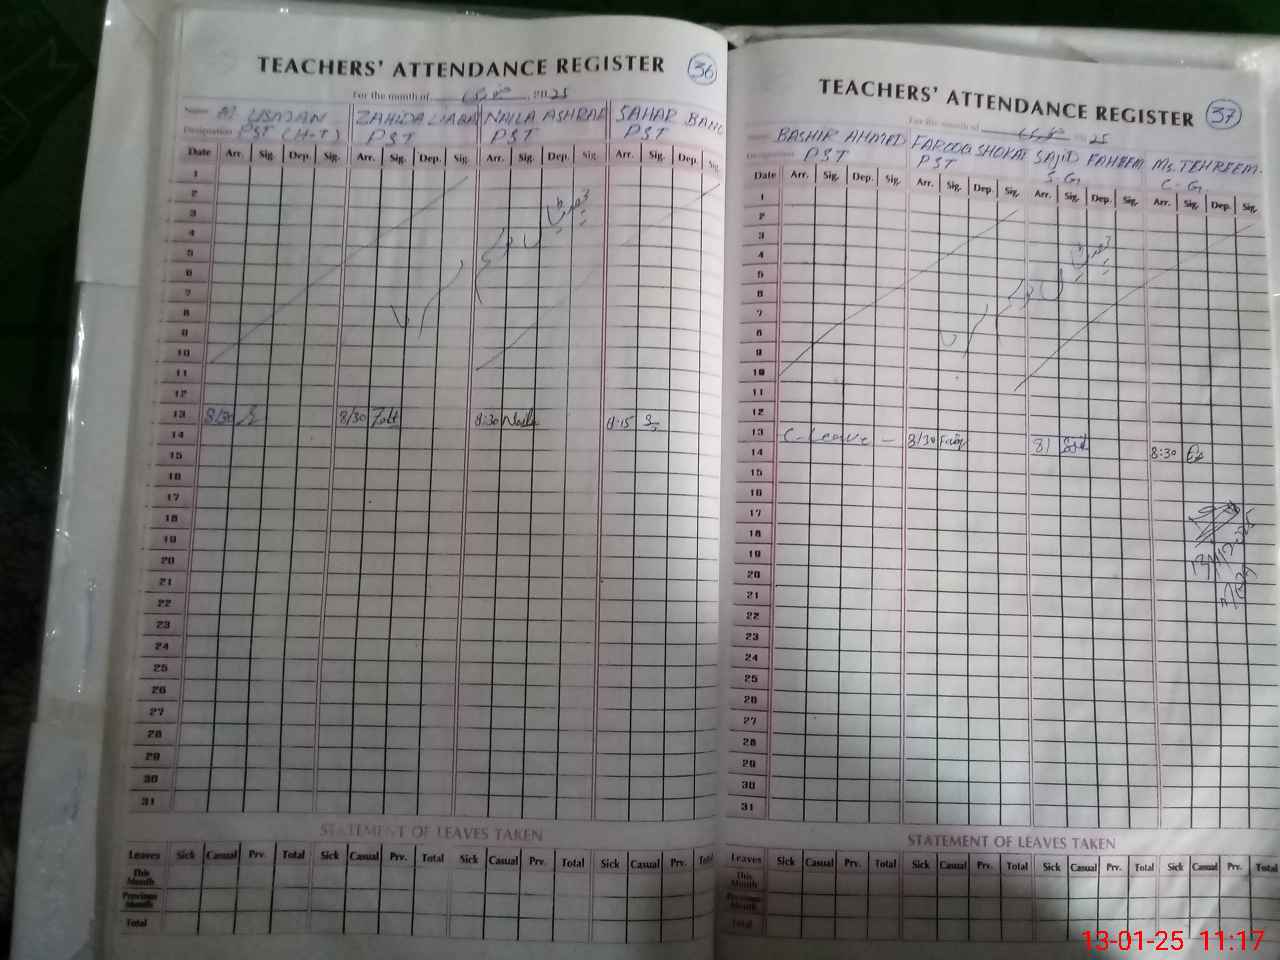 TEACHERS' ATTENDANCE REGISTER 36
For the month of 2025
Name ZAHIDA NAILA ASHRAF SAHAR BANO
Designation PST (H-T) PST PST PST
Date Arr. Sig. Dep. Sig. Arr. Sig. Dep. Sig. Arr. Sig. Dep. Sig. Arr. Sig. Dep. Sig.
1
2
3
4
5
6
7
8
9
10
11
12
13 8/30 8/30 8:30 Naila 8:15
14
15
16
17
18
19
20
21
22
23
24
25
26
27
28
29
30
31
STATEMENT OF LEAVES TAKEN
Leaves Sick Casual Prv. Total Sick Casual Prv. Total Sick Casual Prv. Total Sick Casual Prv. Total
This Month
Previous Month
Total
TEACHERS' ATTENDANCE REGISTER 37
For the month of 2025
BASHIR AHMED FAROOQ SHOKAT SAJID FAHEEM Ms. TEHREEM
Designation PST PST S.G. C.G.
Date Arr. Sig. Dep. Sig. Arr. Sig. Dep. Sig. Arr. Sig. Dep. Sig. Arr. Sig. Dep. Sig.
1
2
3
4
5
6
7
8
9
10
11
12
13 C-Leave - 8/30 8/ 8:30
14
15
16
17
18
19
20
21
22
23
24
25
26
27
28
29
30
31
STATEMENT OF LEAVES TAKEN
Leaves Sick Casual Prv. Total Sick Casual Prv. Total Sick Casual Prv. Total Sick Casual Prv. Total
This Month
Previous Month
Total
13-01-25 11:17